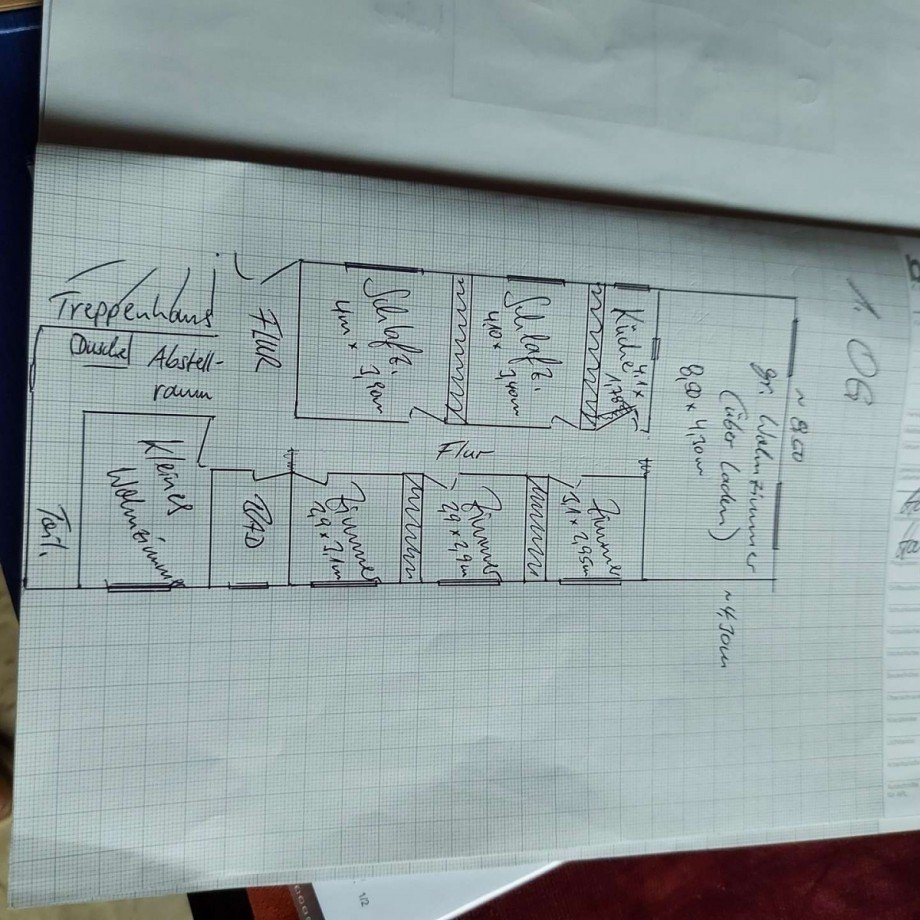 1. OG
~ 8,00
gr. Wohnzimmer
(über Laden)
8,00 x 4,30m
~ 4,30m
Küche
4,1 x
1,78
Schlafz.
4,10 x
3,40m
Schlafz.
4m x
3,40m
Flur
Treppenhaus
Dusche
Abstell-
raum
Flur
Zimmer
3,1 x 2,95m
Zimmer
2,9 x 2,9m
Zimmer
2,9 x 3,1m
BAD
Kleines
Wohnzimmer
1/2